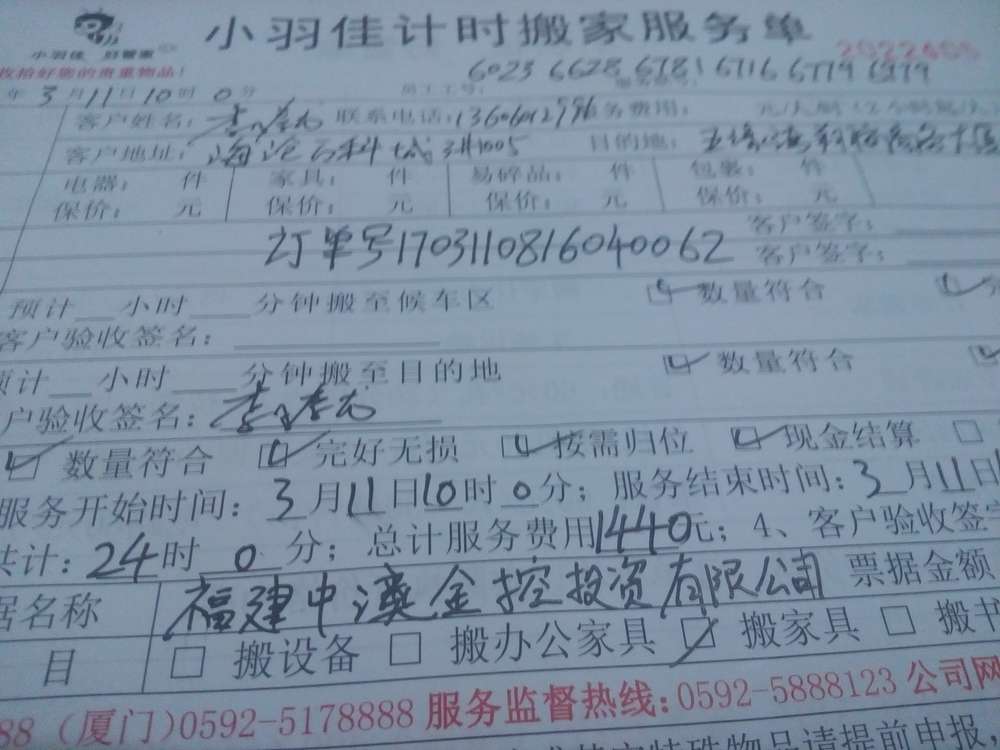 小羽佳计时搬家服务单
小羽佳
收拾好您的贵重物品!
6023 6628 6781 6716 6779 6279
年3月11日10时0分
客户姓名: 联系电话: 务费用:
客户地址: 海沧 科 城 目的地:
电器: 件 家具: 件 易碎品: 件 包裹: 件
保价: 元 保价: 元 保价: 元 保价: 元
客户签字:
订单号1703110816040062 客户签字:
预计 小时 分钟搬至候车区 数量符合
客户验收签名:
预计 小时 分钟搬至目的地 数量符合
户验收签名:
数量符合 完好无损 按需归位 现金结算
服务开始时间:3月11日10时0分; 服务结束时间:3月11日
共计:24时0分; 总计服务费用1440元; 4、客户验收签
据名称 福建中澳金控投资有限公司 票据金额
目 搬设备 搬办公家具 搬家具 搬书
88 (厦门)0592-5178888 服务监督热线:0592-5888123 公司网
特殊物品请提前申报,